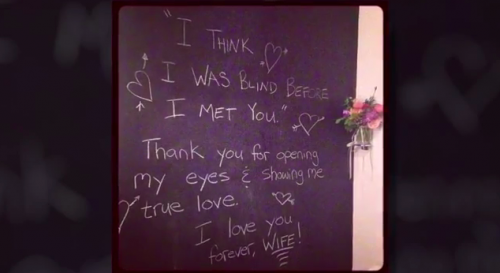 "I THINK
I WAS BLIND BEFORE
I MET YOU."
Thank you for opening
my eyes & showing me
true love.
I love you
forever, WIFE!